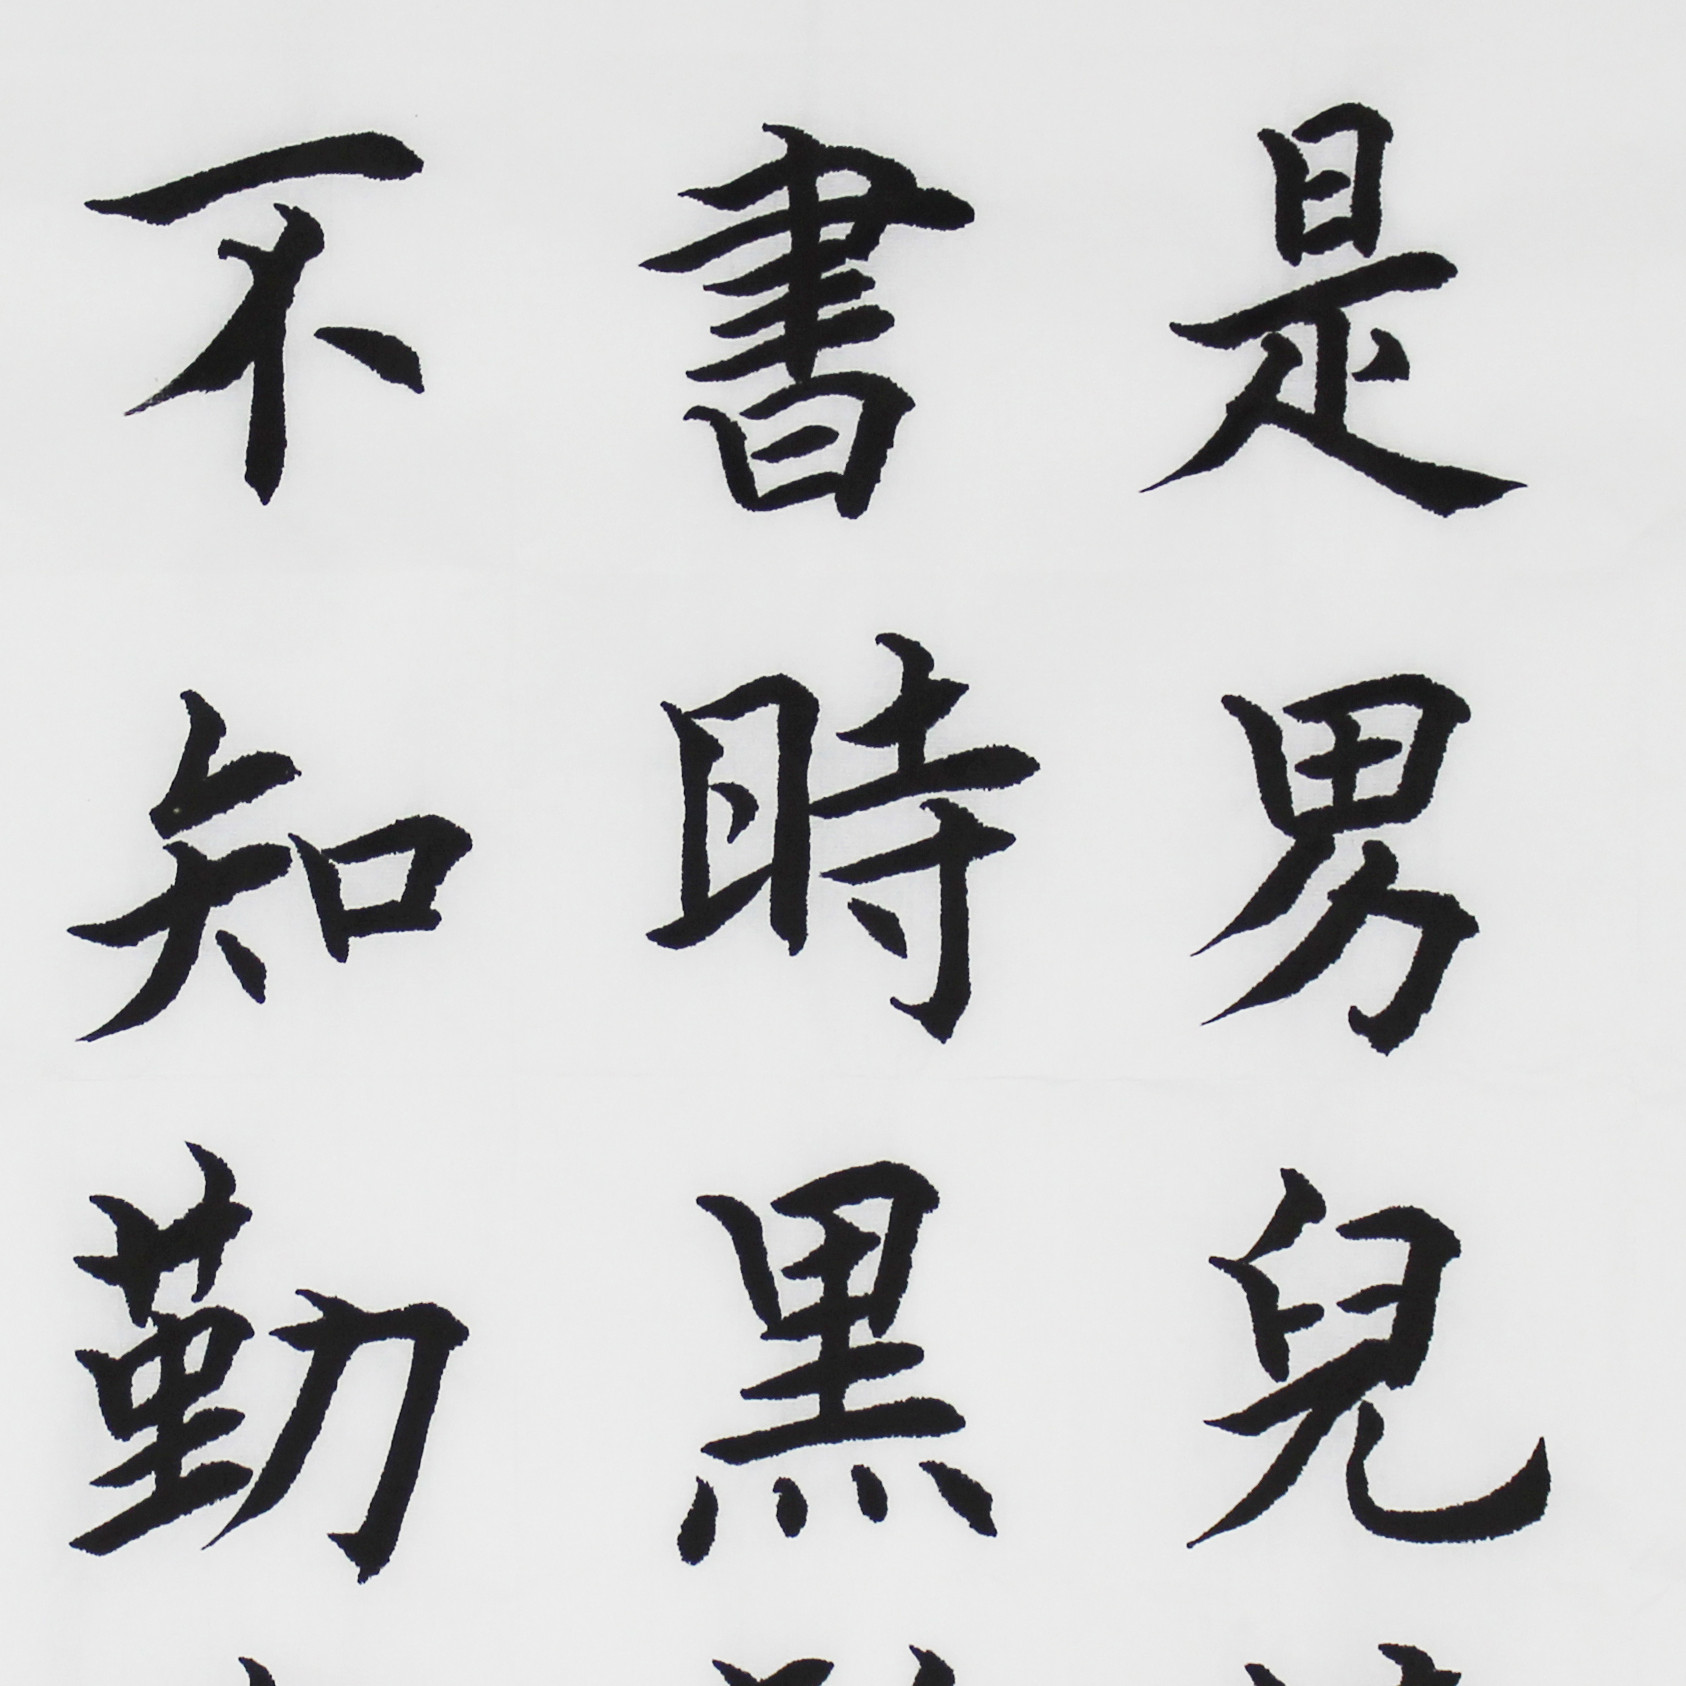 是男兒
書時黑
不知勤